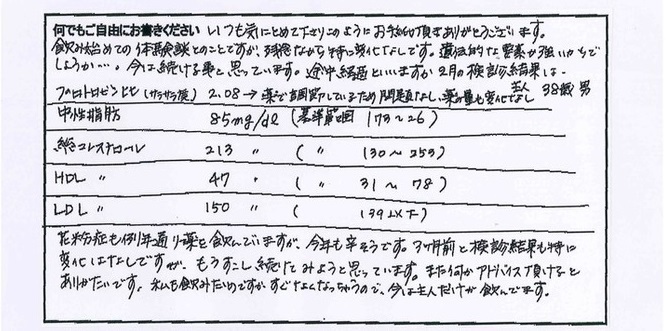 何でもご自由にお書きください いつも気にとめて下さりこのようにお手紙頂きありがとうございます。
飲み始めての体験談とのことですが、残念ながら特に変化なしです。遺伝的な要素が強いからで
しょうか…。今は続ける事と思っています。途中経過といいますか2月の検診結果は…
プロトロンビン (サラサラ度) 2.08→薬で調節しているため問題なし、薬の量も変化なし 主人 38歳 男
中性脂肪 85mg/dl (基準範囲 173~26)
総コレステロール 213 〃 ( 〃 130~253)
HDL 〃 47 〃 ( 〃 31~78)
LDL 〃 150 〃 ( 139以下)
花粉症も例年通り薬を飲んでいますが、今年も辛そうです。3ヶ月前と検診結果も特に
変化はなしですが、もうすこし続けてみようと思っています。また何かアドバイス頂けると
ありがたいです。私も飲みたいのですがすぐなくなっちゃうので、今は主人だけが飲んでます。